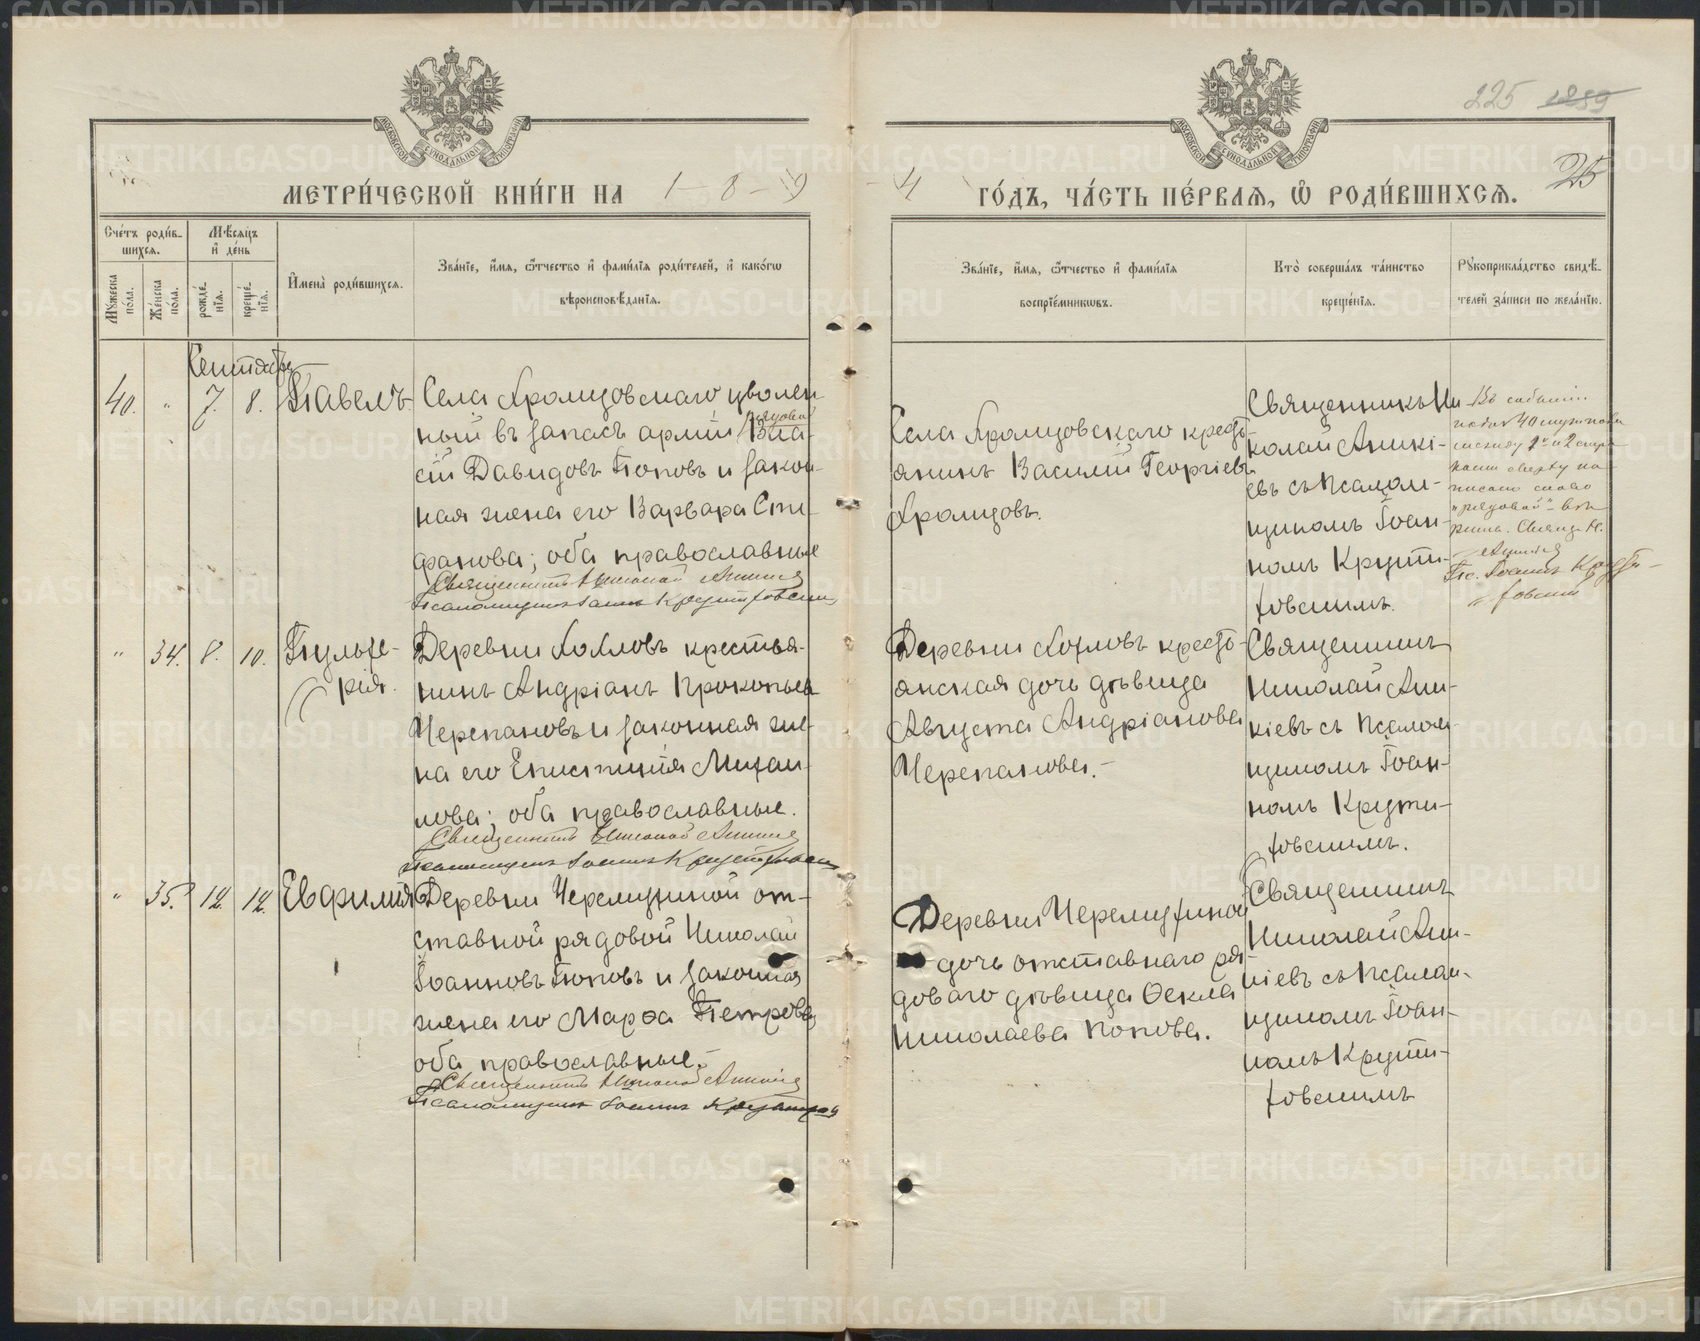 225 1289
25
МЕТРИ́ЧЕСКОЙ КНИ́ГИ НА 1 - 8 - 9
- 4 ГО́ДЪ, ЧА́СТЬ ПЕ́РВАЯ, Ѡ҆ РОДИ́ВШИХСЯ.
Сче́тъ роди́в-
шихся.
Мѣ́сяцъ
и҆ де́нь
Мꙋ́жеска
по́ла.
Же́нска
по́ла.
рожде́-
нїя.
креще́-
нїя.
И҆мена̀ роди́вшихся.
Зва́нїе, и҆́мя, ѻ҆́тчество и҆ фами́лїя роди́телей, и҆ како́гѡ
вѣроисповѣ́данїя.
Зва́нїе, и҆́мя, ѻ҆́тчество и҆ фами́лїя
воспрїе́мникѡвъ.
Кто̀ соверша́лъ та́инство
креще́нїя.
Рꙋкоприкла́дство свидѣ́-
телей за́писи по жела́нїю.
Сентябрь
40. " 7. 8. Павелъ
Села Храмцовскаго уволен-
рядовой
ный въ запасъ арміи Вла-
сій Давидовъ Поповъ и закон-
ная жена его Варвара Сте-
фанова; оба православные
Священникъ Николай Аникіев
Псаломщикъ Іоаннъ Крутиховскій
Села Храмцовскаго кресть-
янинъ Василій Георгіевъ
Храмцовъ.
Священникъ Ни-
колай Аникі-
евъ съ псалом-
щикомъ Іоан-
номъ Крути-
ховскимъ.
Въ событіи
подъ № 40 мужского
между 1й и 2 стро-
ками сверху на-
писано слово
"рядовой" вѣр
Свящ. Н.
Аникіев
Пс. Іоаннъ Крути-
ховскій
" 34. 8. 10. Пульхе-
рія.
Деревни Хохловъ крестья-
нинъ Андріанъ Прокопьевъ
Черепановъ и законная же-
на его Епистимія Михаи-
лова; оба православные.
Священникъ Николай Аникіев
Псаломщикъ Іоаннъ Крутиховскій
Деревни Хохловъ кресть-
янская дочь дѣвица
Августа Андріанова
Черепанова.-
Священникъ
Николай Ани-
кіевъ съ псалом-
щикомъ Іоан-
номъ Крути-
ховскимъ.
" 35. 12. 12. Евфимія
Деревни Черемухиной от-
ставной рядовой Николай
Іоанновъ Поповъ и законная
жена его Марѳа Петрова
оба православные.-
Священникъ Николай Аникіев
Псаломщикъ Іоаннъ Крутихов
Деревни Черемухиной
дочь отставнаго ря-
доваго дѣвица Ѳекла
Николаева Попова.
Священникъ
Николай Ани-
кіевъ съ псалом-
щикомъ Іоан-
номъ Крути-
ховскимъ
METRIKI.GASO-URAL.RU